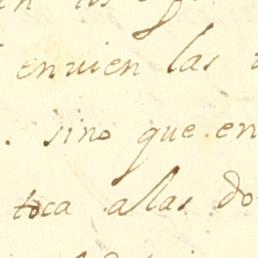 enuien las
. sino que en
toca alas do